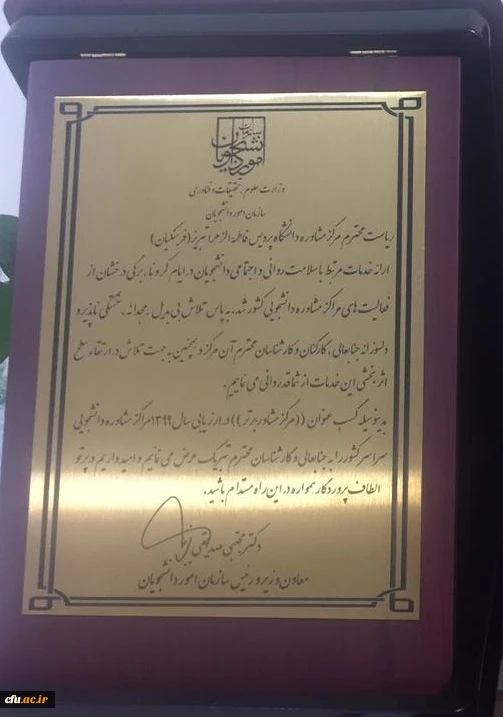 سازمان امور دانشجویان
وزارت علوم، تحقیقات و فناوری
سازمان امور دانشجویان
ریاست محترم مرکز مشاوره دانشگاه پردیس فاطمه الزهرا تبریز (فرهنگیان)
ارائه خدمات مرتبط با سلامت روانی و اجتماعی دانشجویان در ایام کرونا، برگی درخشان از
فعالیت های مراکز مشاوره دانشجویی کشور شد. به پاس تلاش بی بدیل، مجدانه، خستگی ناپذیر و
دلسوزانه جنابعالی، کارکنان و کارشناسان محترم آن مرکز و همچنین به جهت تلاش در ارتقاء سطح
اثربخشی این خدمات از شما قدردانی می نماییم.
بدینوسیله کسب عنوان ((مرکز مشاوره برتر)) در ارزیابی سال ۱۳۹۹ مراکز مشاوره دانشجویی
سراسر کشور را به جنابعالی و کارشناسان محترم تبریک عرض می نماییم و امید داریم در پرتو
الطاف پروردگار همواره در این راه مستدام باشید.
دکتر مجتبی صدیقی
معاون وزیر و رئیس سازمان امور دانشجویان
cfu.ac.ir